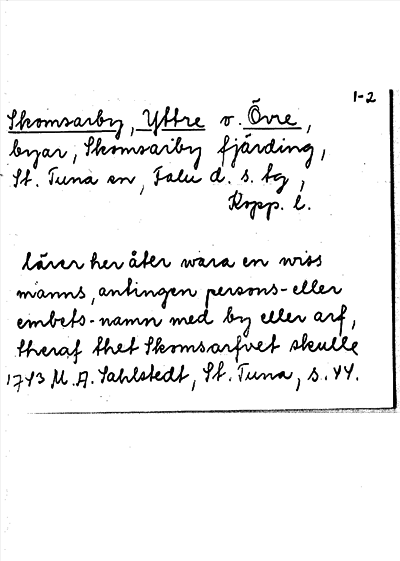 1-2
Skomsarby, Yttre o. Övre,
byar, Skomsarby fjärding,
St. Tuna sn, Falu d. s. tg,
Kopp. l.
lärer her åter wara en wiss
manns, antingen persons- eller
embets-namn med by eller arf,
theraf thet Skomsarfvet skulle
1743 M. A. Sahlstedt, St. Tuna, s. 44.